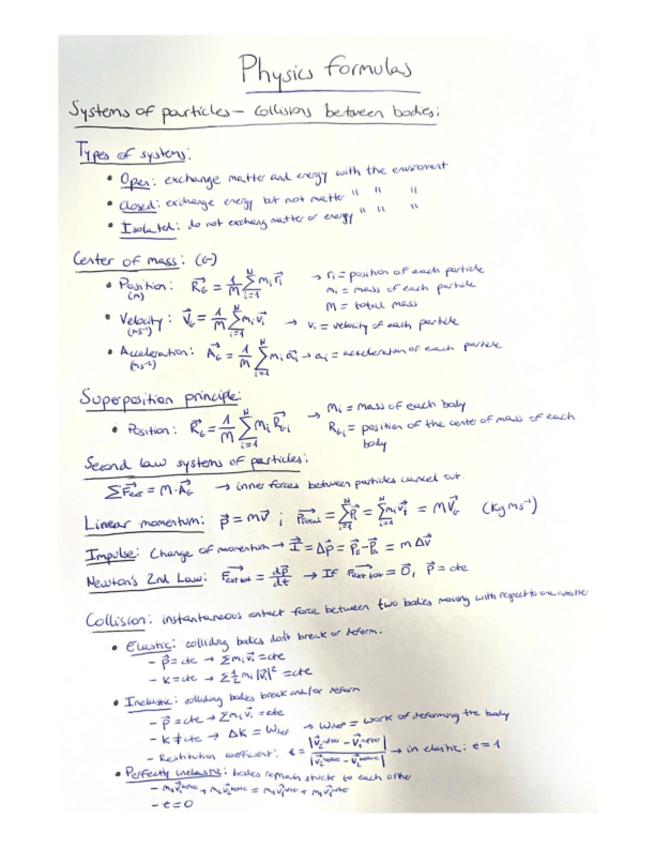 Physics formulas
Systems of particles – Collisions between bodies:
Types of systems:
• Open: exchange matter and energy with the enviroment
• Closed: exchange energy but not matter " " "
• Isolated: do not exchang matter or energy " " "
Center of mass: (G)
• Position: R⃗_G = 1/M ∑_{i=1}^{N} m_i r⃗_i → r_i = position of each particle
(m) m_i = mass of each particle
M = total mass
• Velocity: V⃗_G = 1/M ∑_{i=1}^{N} m_i v⃗_i → v_i = velocity of each particle
(ms⁻¹)
• Acceleration: A⃗_G = 1/M ∑_{i=1}^{N} m_i a⃗_i → a_i = acceleration of each particle
(ms⁻²)
Superposition principle:
• Position: R⃗_G = 1/M ∑_{i=1}^{N} M_i R⃗_{Gi} → M_i = mass of each body
R_{Gi} = position of the center of mass of each
body
Second law systems of particles:
∑F⃗_ext = M·A⃗_G → inner forces between particles cancel out.
Linear momentum: p⃗ = mv⃗ ; P⃗_total = ∑_{i=1}^{N} p⃗_i = ∑_{i=1}^{N} m_i v⃗_i = MV⃗_G (Kg ms⁻¹)
Impulse: Change of momentum → I⃗ = Δp⃗ = p⃗_f - p⃗_0 = m Δv⃗
Newton's 2nd Law: F⃗_ext tot = dp⃗/dt → If F⃗_ext tot = 0⃗, p⃗ = cte
Collision: instantaneous contact force between two bodies moving with respect to one another
• Elastic: colliding bodies don't break or deform.
– p⃗ = cte → ∑m_i v⃗_i = cte
– K = cte → ∑ 1/2 m_i |v⃗_i|² = cte
• Inelastic: colliding bodies break and/or deform
– p⃗ = cte → ∑m_i v⃗_i = cte
– K ≠ cte → ΔK = W_def → W_def = work of deforming the body
– Restitution coefficient: e = |v⃗_2^after - v⃗_1^after| / |v⃗_2^before - v⃗_1^before| → in elastic: e = 1
• Perfectly inelastic: bodies remain stuck to each other
– m_1 v⃗_1^before + m_2 v⃗_2^before = m_1 v⃗_1^after + m_2 v⃗^after
– e = 0